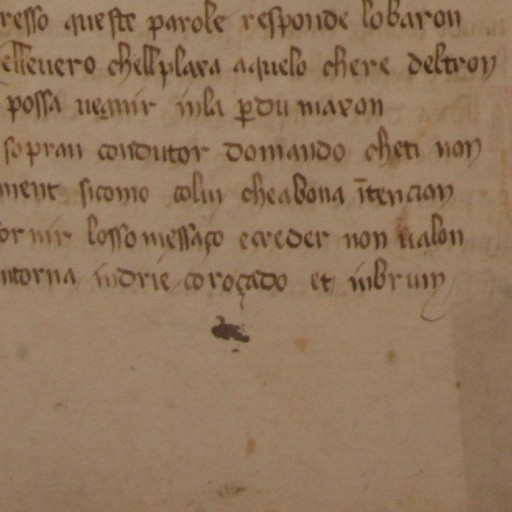 resso queste parole responde lobaron
elleuero chellplaxa aquelo chere deltron
possa uegnir inla perdu maxon
sopran condutor domando cheti non
ment sicomo colui cheabona ītencion
ornir lossomessaço ecreder non ualon
ntorna indrie coroçado et inbrum